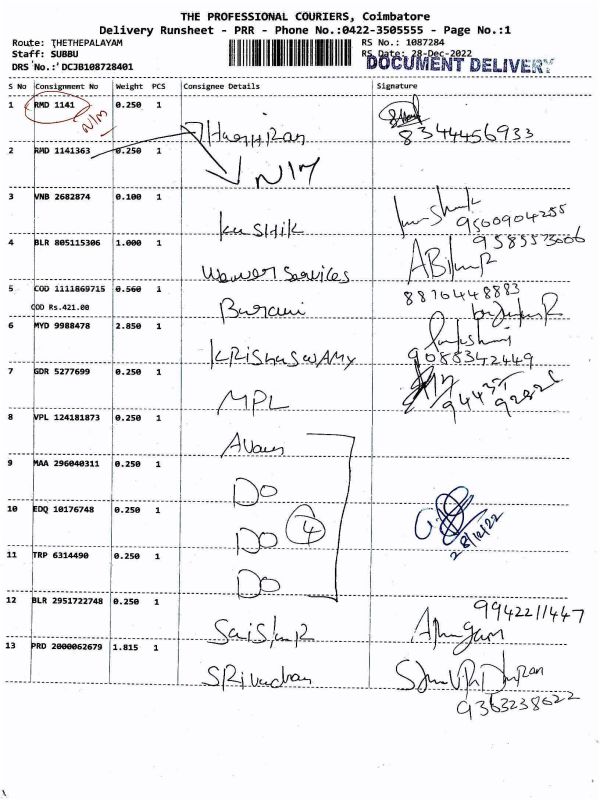 THE PROFESSIONAL COURIERS, Coimbatore
Delivery Runsheet - PRR - Phone No.:0422-3505555 - Page No.:1
Route: THETHEPALAYAM RS No.: 1087284
Staff: SUBBU RS Date: 28-Dec-2022
DOCUMENT DELIVERY
DRS No.:'DCJB108728401
S No Consignment No Weight PCS Consignee Details Signature
1 RMD 1141 0.250 1
N/M
8344456933
2 RMD 1141363 0.250 1
N/M
3 VNB 2682874 0.100 1
KUSHIK 9500904255
4 BLR 805115306 1.000 1 9585573006
Services
5 COD 1111869715 0.560 1 8870448883
COD Rs.421.00
6 MYD 9988478 2.850 1
KRISHNASWAMY 9088342449
7 GDR 5277699 0.250 1
MPL
8 VPL 124181873 0.250 1
9 MAA 296040311 0.250 1
DO
10 EDQ 10176748 0.250 1
DO 4
28/12/22
11 TRP 6314490 0.250 1
DO
12 BLR 2951722748 0.250 1 9942211447
13 PRD 2000062679 1.815 1
9363238622